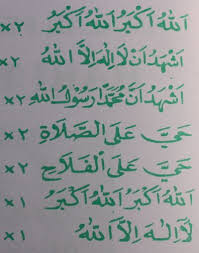 اَللهُ اَكْبَرُ اَللهُ اَكْبَرُ ×٢
اَشْهَدُ اَنْ لَا اِلٰهَ اِلَّا اللهُ ×٢
اَشْهَدُ اَنَّ مُحَمَّدًا رَسُوْلُ اللهِ ×٢
حَيَّ عَلَى الصَّلَاةِ ×٢
حَيَّ عَلَى الْفَلَاحِ ×٢
اَللهُ اَكْبَرُ اَللهُ اَكْبَرُ ×١
لَا اِلٰهَ اِلَّا اللهُ ×١